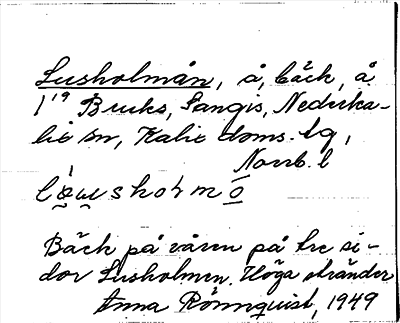 Lusholmån, å, bäck, å
1¹⁹ Bruks, Sangis, Nederka-
lix sn, Kalix doms. tg,
Norrb. l
Bäck på våren på tre si-
dor Lusholmen. Höga stränder
Anna Rönnquist, 1949